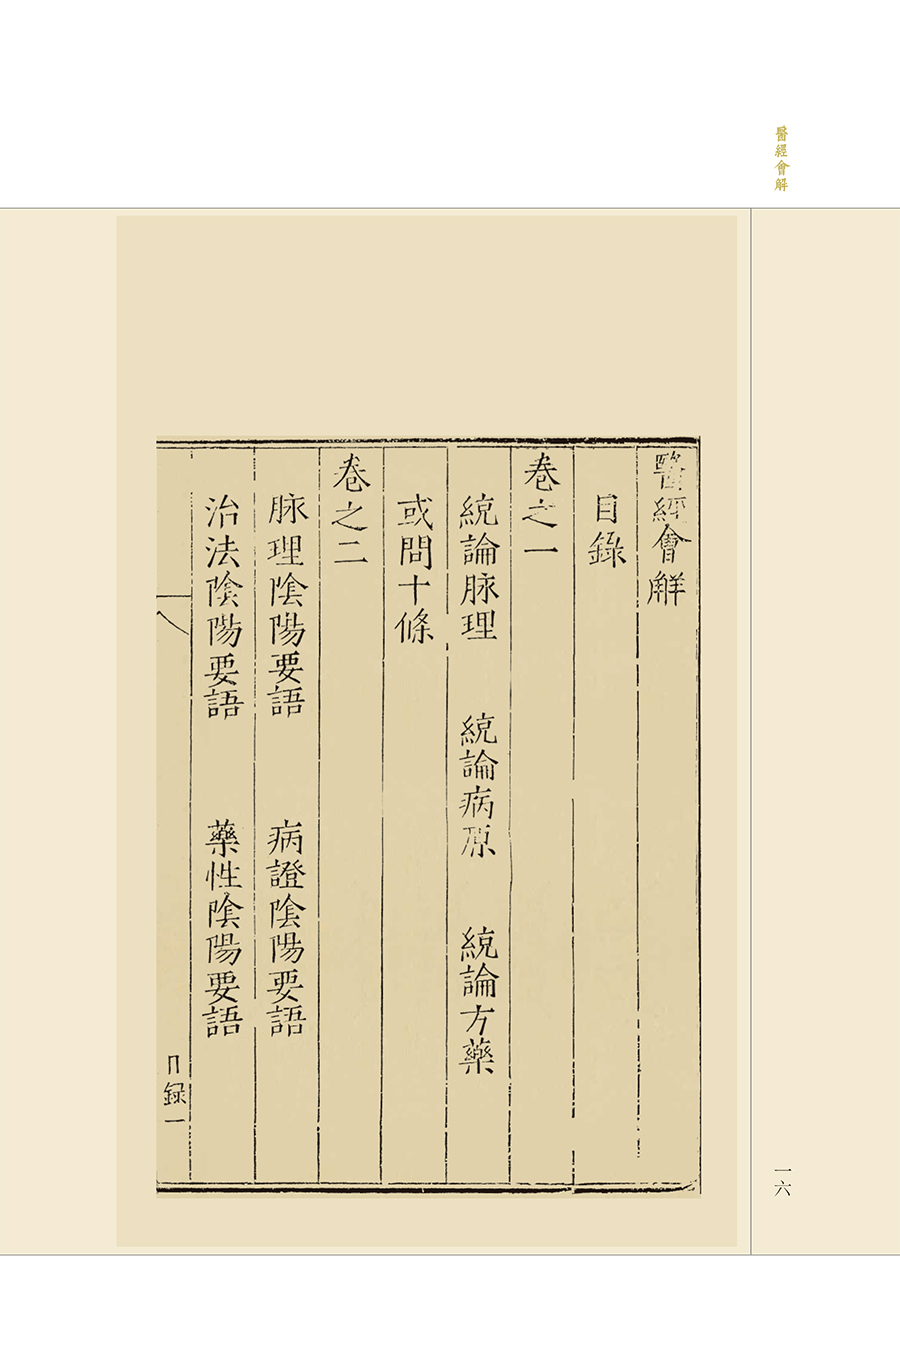 醫經會解
醫經會解
目錄
卷之一
統論脉理 統論病原 統論方藥
或問十條
卷之二
脉理陰陽要語 病證陰陽要語
治法陰陽要語 藥性陰陽要語
目録一
一六